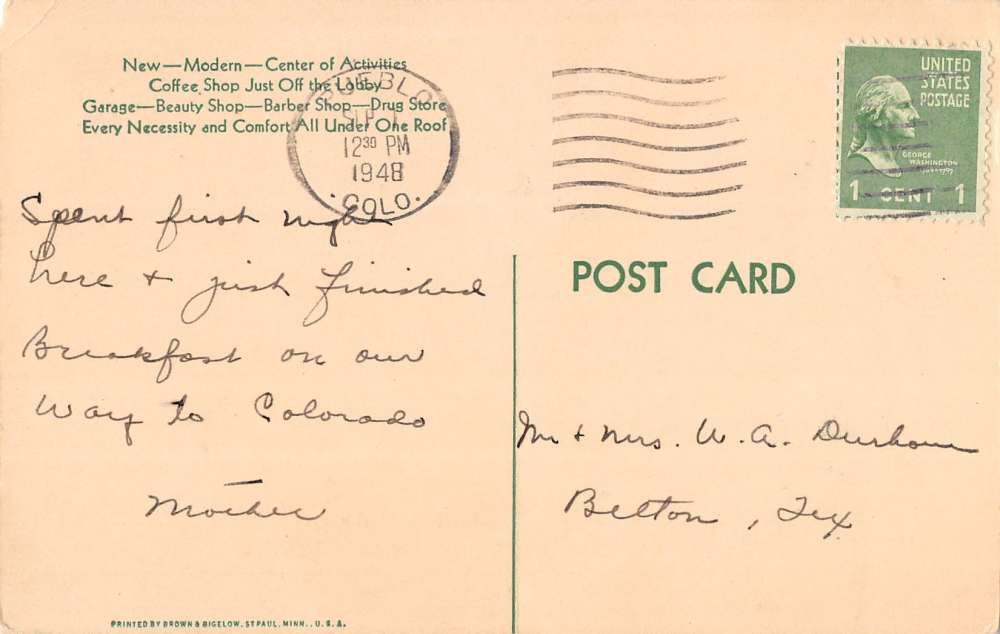 New—Modern—Center of Activities
Coffee Shop Just Off the Lobby
Garage—Beauty Shop—Barber Shop—Drug Store
Every Necessity and Comfort All Under One Roof
PUEBLO
SEP 1
12 30 PM
1948
COLO.
UNITED
STATES
POSTAGE
GEORGE
WASHINGTON
1 CENT 1
Spent first night
here + just finished
Breakfast on our
Way to Colorado
Mother
POST CARD
Mr + Mrs. W. A. Durham
Belton, Tex
PRINTED BY BROWN & BIGELOW, ST. PAUL, MINN., U. S. A.